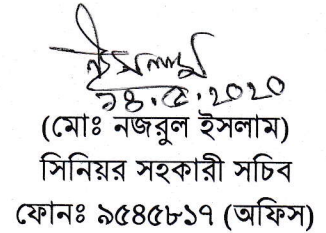 ইসলাম
১৪.৫.২০২০
(মোঃ নজরুল ইসলাম)
সিনিয়র সহকারী সচিব
ফোনঃ ৯৫৪৫৮১৭ (অফিস)